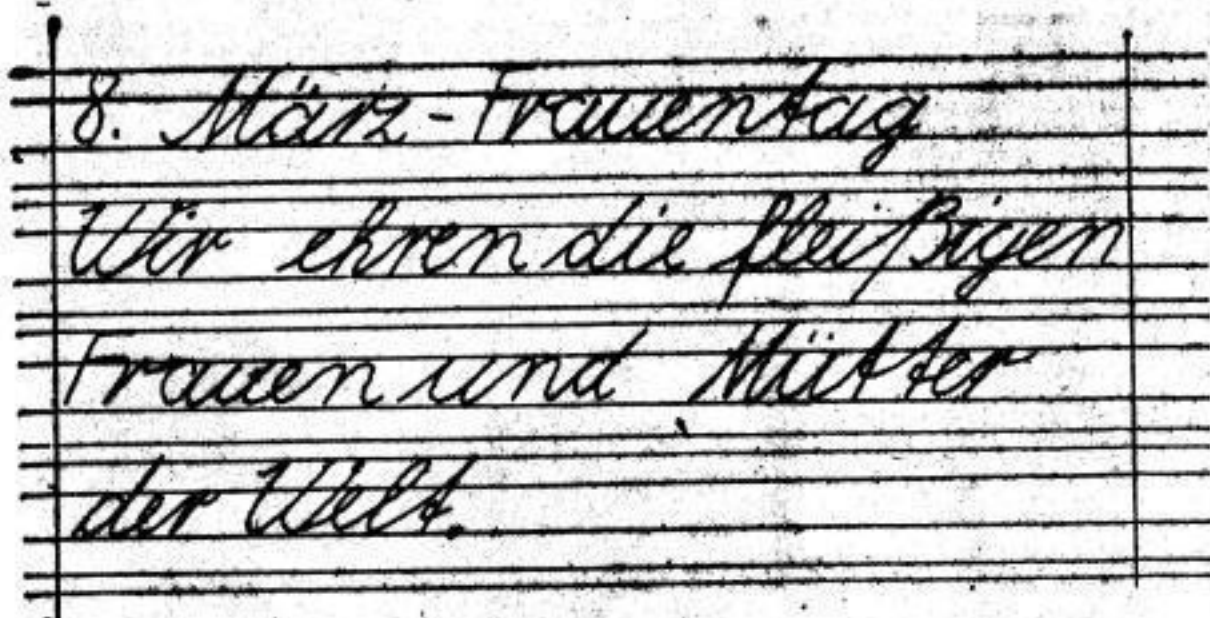 8. März-Frauentag
Wir ehren die fleißigen
Frauen und Mütter
der Welt.